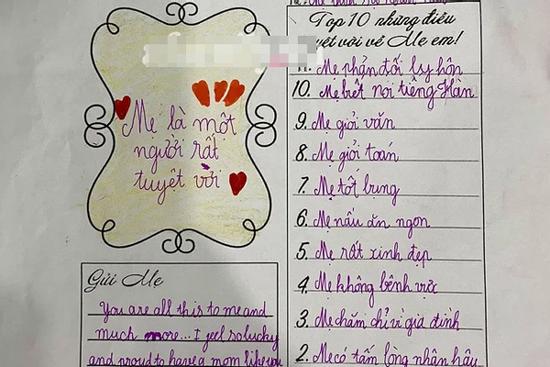 Mẹ là một
người rất
tuyệt vời
Gửi Mẹ
You are all this to me and
much more... I feel so lucky
and proud to have a mom like you
Top 10 những điều
tuyệt vời về Mẹ em!
11. Mẹ phản đối ly hôn
10. Mẹ biết nói tiếng Hàn
9. Mẹ giỏi văn
8. Mẹ giỏi toán
7. Mẹ tốt bụng
6. Mẹ nấu ăn ngon
5. Mẹ rất xinh đẹp
4. Mẹ không bênh vực
3. Mẹ chăm chỉ vì gia đình
2. Mẹ có tấm lòng nhân hậu